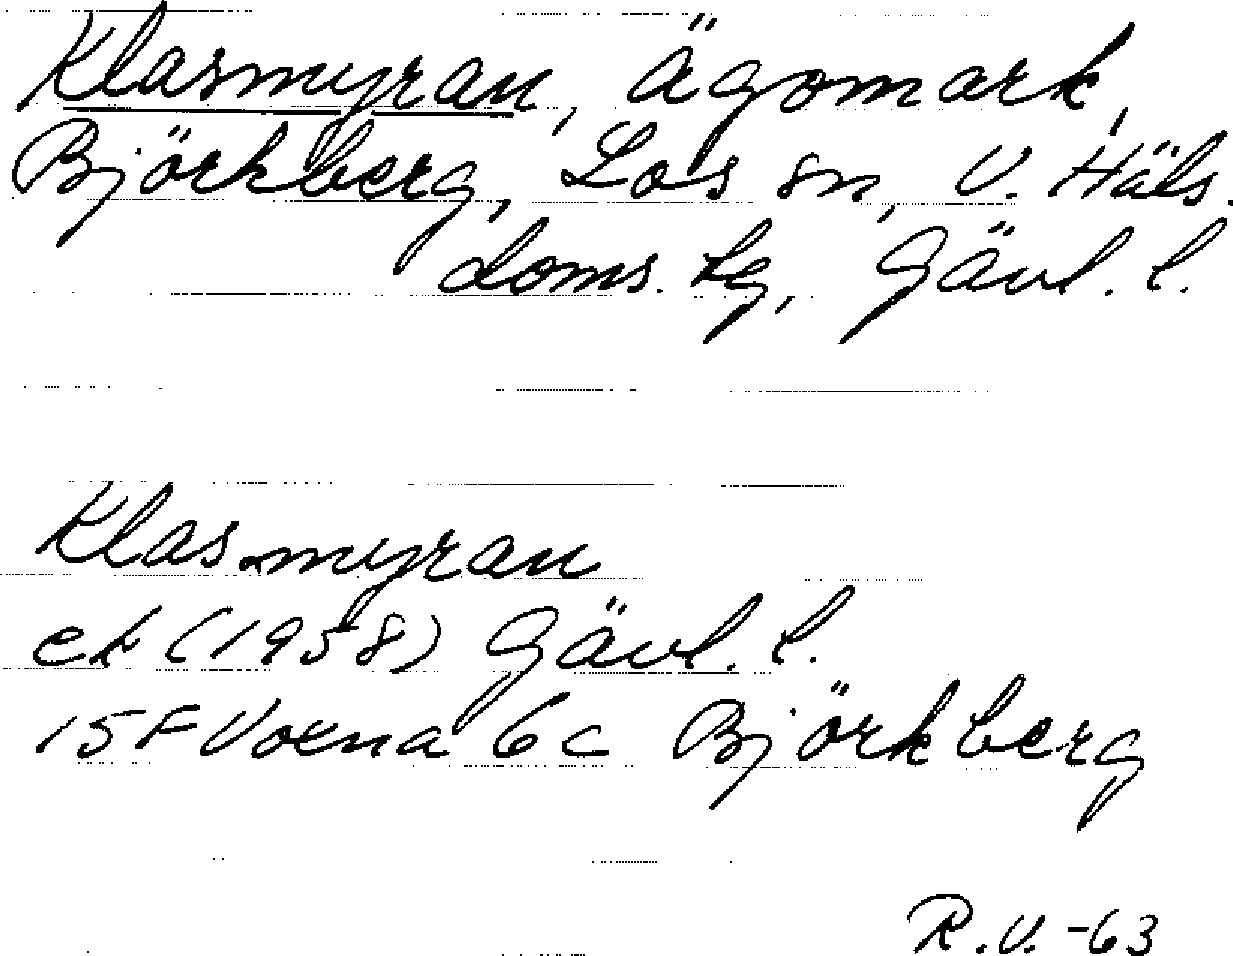 Klasmyran, ägomark,
Björkberg, Los sn, V. Häls.
doms. tg, Gävl. l.
Klasmyran
ek (1958) Gävl. l.
15F Voxna 6c Björkberg
R.V. -63